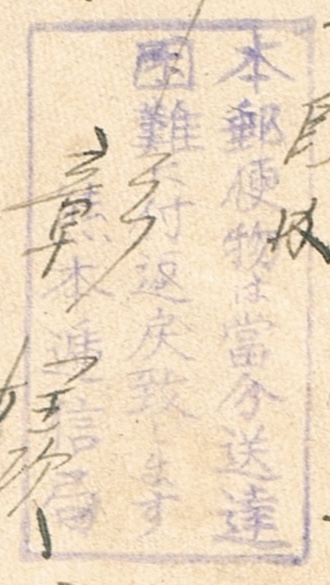 本郵便物は當分送達
困難ニ付返戻致します
熊本逓信局
彰